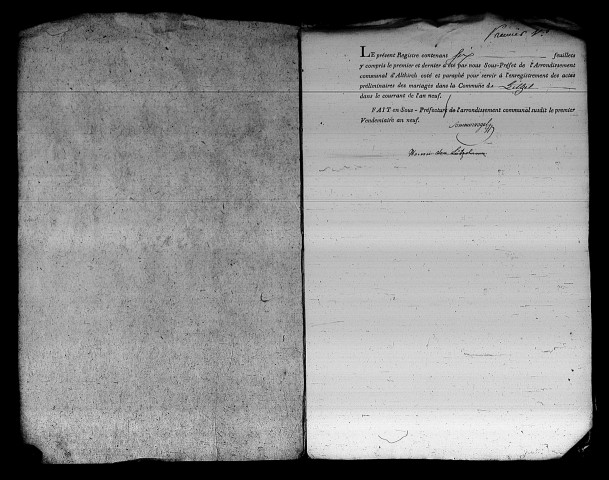 Premier
LE présent Registre contenant six feuillets
y compris le premier et dernier a été par nous Sous-Préfet de l'Arrondissement
communal d'Altkirch coté et paraphé pour servir à l'enregistrement des actes
préliminaires des mariages dans la Commune de
dans le courrant de l'an neuf.
FAIT en Sous-Préfecture de l'arrondissement communal susdit le premier
Vendemiaire an neuf.